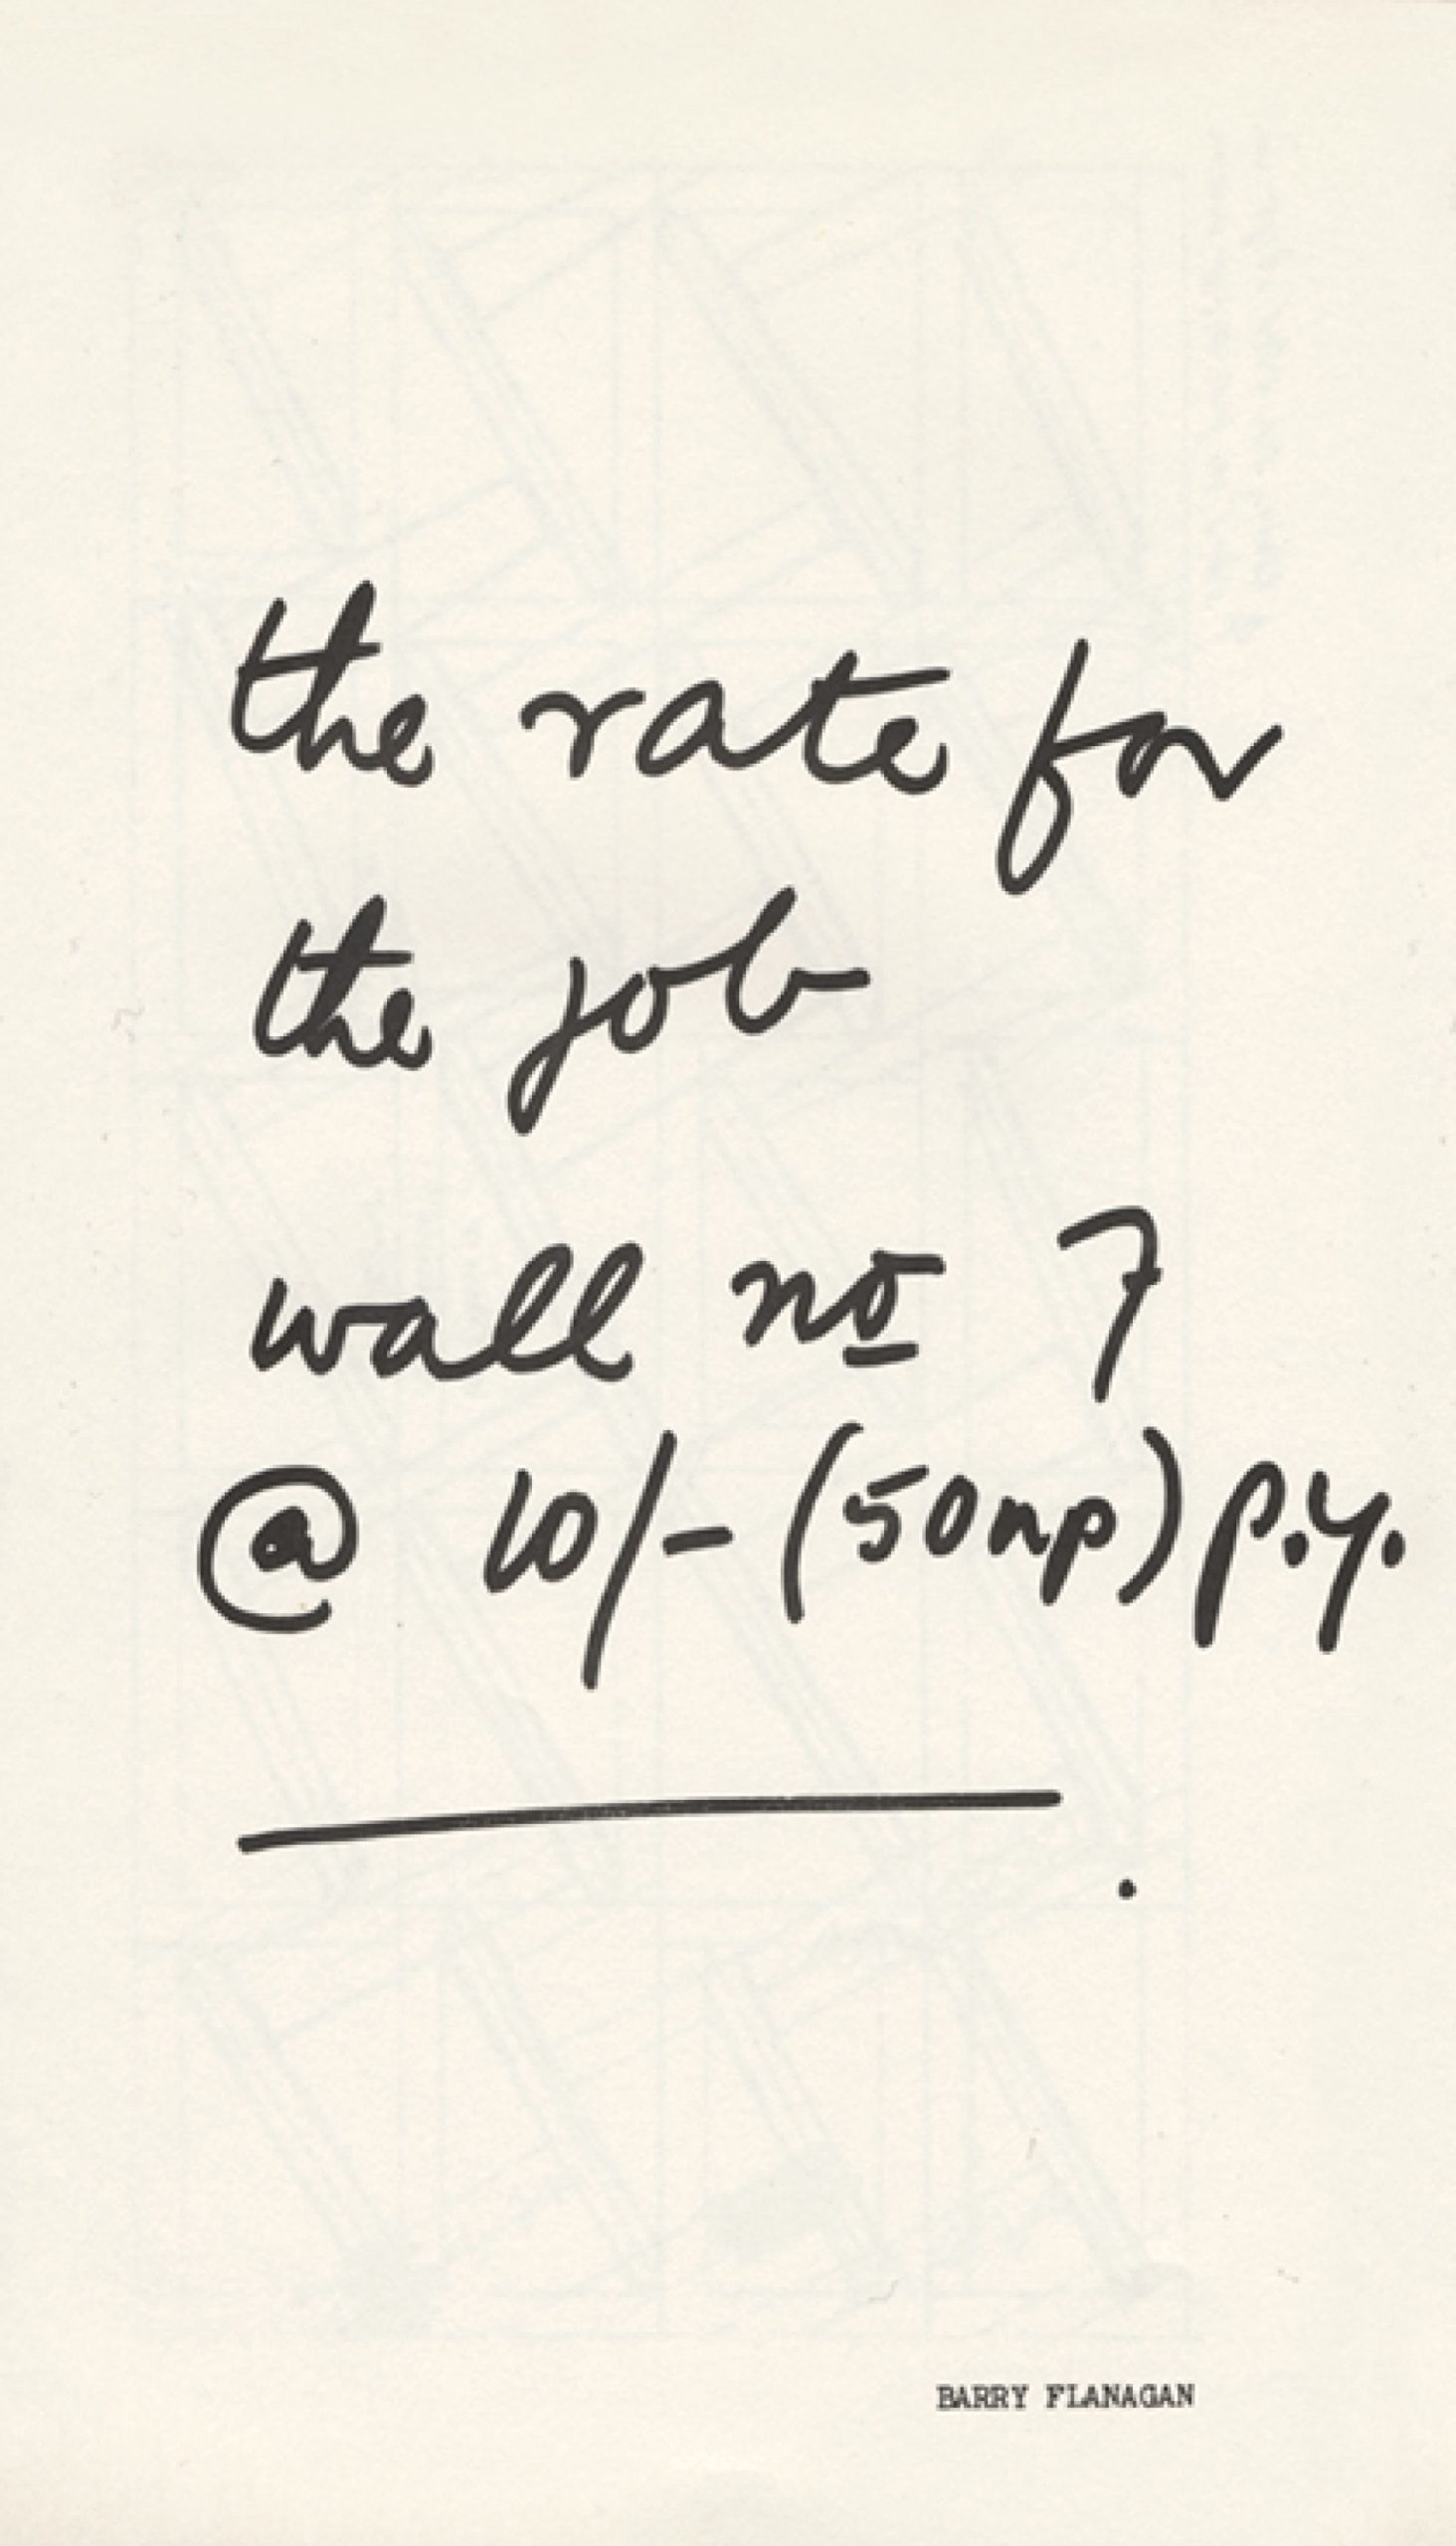 the rate for
the job
wall no 7
@ 10/- (50np) p.y.
BARRY FLANAGAN